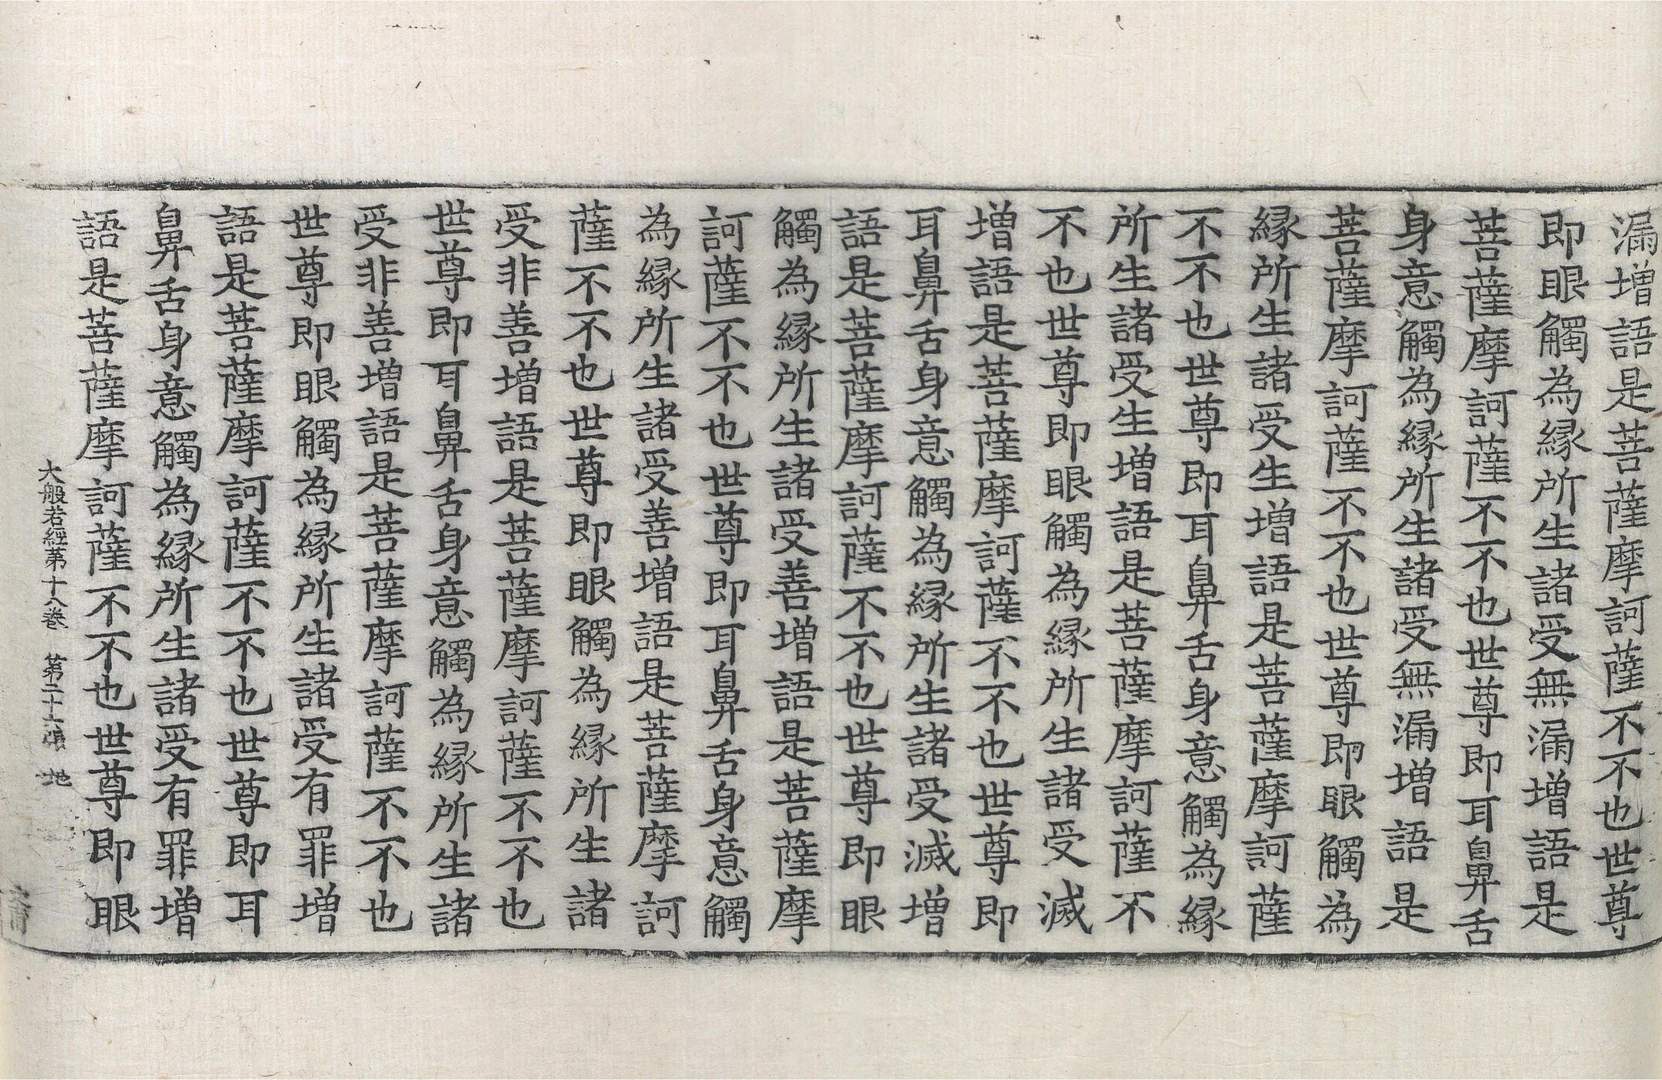 漏增語是菩薩摩訶薩不不也世尊
即眼觸為緣所生諸受無漏增語是
菩薩摩訶薩不不也世尊即耳鼻舌
身意觸為緣所生諸受無漏增語是
菩薩摩訶薩不不也世尊即眼觸為
緣所生諸受生增語是菩薩摩訶薩
不不也世尊即耳鼻舌身意觸為緣
所生諸受生增語是菩薩摩訶薩不
不也世尊即眼觸為緣所生諸受滅
增語是菩薩摩訶薩不不也世尊即
耳鼻舌身意觸為緣所生諸受滅增
語是菩薩摩訶薩不不也世尊即眼
觸為緣所生諸受善增語是菩薩摩
訶薩不不也世尊即耳鼻舌身意觸
為緣所生諸受善增語是菩薩摩訶
薩不不也世尊即眼觸為緣所生諸
受非善增語是菩薩摩訶薩不不也
世尊即耳鼻舌身意觸為緣所生諸
受非善增語是菩薩摩訶薩不不也
世尊即眼觸為緣所生諸受有罪增
語是菩薩摩訶薩不不也世尊即耳
鼻舌身意觸為緣所生諸受有罪增
語是菩薩摩訶薩不不也世尊即眼
大般若經第十八卷 第二十張 地